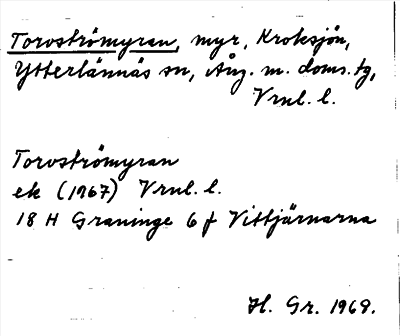 Torvströmyran, myr, Kroksjön,
Ytterlännäs sn, Ång. m. doms.tg,
Vrnl. l.
Torvströmyran
ek (1967) Vrnl. l.
18 H Graninge 6 f Vittjärnarna
H. Gr. 1969.